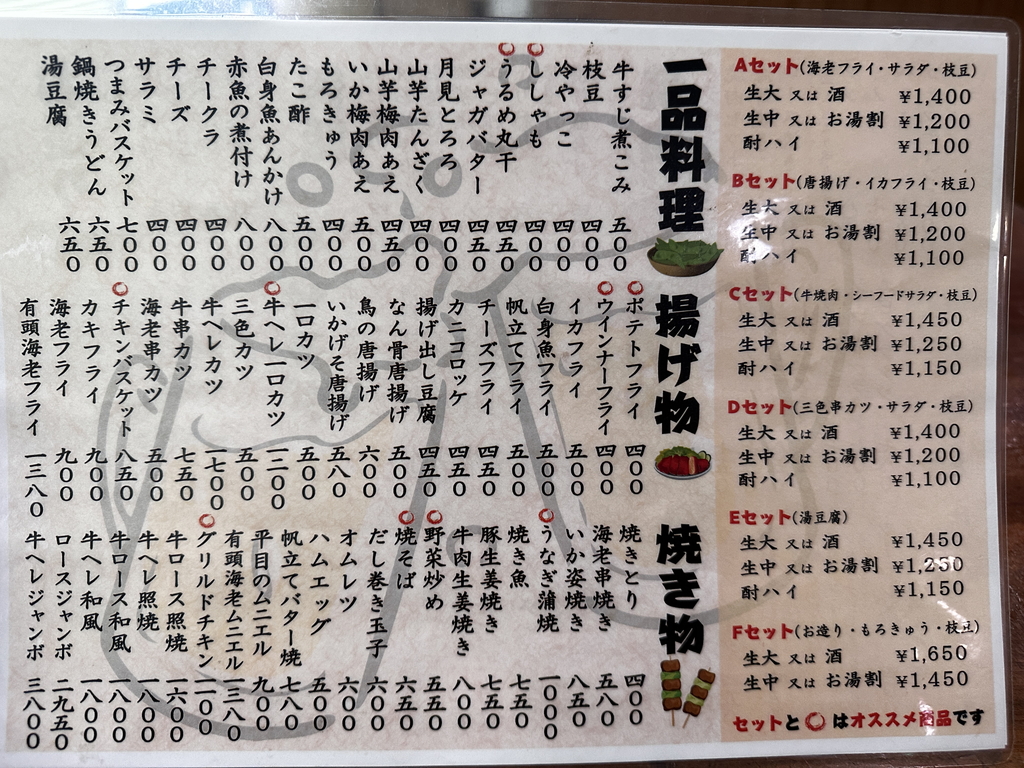 Aセット(海老フライ・サラダ・枝豆)
生大 又は 酒 ¥1,400
生中 又は お湯割 ¥1,200
酎ハイ ¥1,100
Bセット(唐揚げ・イカフライ・枝豆)
生大 又は 酒 ¥1,400
生中 又は お湯割 ¥1,200
酎ハイ ¥1,100
Cセット(牛焼肉・シーフードサラダ・枝豆)
生大 又は 酒 ¥1,450
生中 又は お湯割 ¥1,250
酎ハイ ¥1,150
Dセット(三色串カツ・サラダ・枝豆)
生大 又は 酒 ¥1,400
生中 又は お湯割 ¥1,200
酎ハイ ¥1,100
Eセット(湯豆腐)
生大 又は 酒 ¥1,450
生中 又は お湯割 ¥1,250
酎ハイ ¥1,150
Fセット(お造り・もろきゅう・枝豆)
生大 又は 酒 ¥1,650
生中 又は お湯割 ¥1,450
セットと〇はオススメ商品です
一品料理
牛すじ煮こみ 五〇〇
枝豆 四〇〇
冷やっこ 四〇〇
ししゃも 四〇〇
うるめ丸干 四五〇
ジャガバター 四五〇
月見とろろ 四〇〇
山芋たんざく 四〇〇
山芋梅肉あえ 四五〇
いか梅肉あえ 五〇〇
もろきゅう 四〇〇
たこ酢 五〇〇
白身魚あんかけ 八〇〇
赤魚の煮付け 八〇〇
チークラ 四〇〇
チーズ 四〇〇
サラミ 四〇〇
つまみバスケット 七〇〇
鍋焼きうどん 六五〇
湯豆腐 六五〇
揚げ物
ポテトフライ 四〇〇
ウインナーフライ 四〇〇
イカフライ 五〇〇
白身魚フライ 五〇〇
帆立てフライ 五五〇
チーズフライ 四五〇
カニコロッケ 四五〇
揚げ出し豆腐 四五〇
なん骨唐揚げ 五〇〇
鳥の唐揚げ 六〇〇
いかげそ唐揚げ 五八〇
一口カツ 五〇〇
牛ヘレ一口カツ 一二〇〇
三色カツ 五〇〇
牛ヘレカツ 一七〇〇
牛串カツ 七五〇
海老串カツ 五〇〇
チキンバスケット 八五〇
カキフライ 九〇〇
海老フライ 九〇〇
有頭海老フライ 一三八〇
焼き物
焼きとり 四〇〇
海老串焼き 五八〇
いか姿焼き 八五〇
うなぎ蒲焼 一〇〇〇
焼き魚 五五〇
豚生姜焼き 七五〇
牛肉生姜焼き 八〇〇
野菜炒め 五五〇
焼そば 六五〇
だし巻き玉子 六〇〇
オムレツ 六〇〇
ハムエッグ 五〇〇
帆立てバター焼 七八〇
平目のムニエル 九〇〇
有頭海老ムニエル 一三八〇
グリルドチキン 一二〇〇
牛ロース照焼 一六〇〇
牛ヘレ照焼 一八〇〇
牛ロース和風 一八〇〇
牛ヘレ和風 一八〇〇
ロースジャンボ 二九五〇
牛ヘレジャンボ 三八〇〇